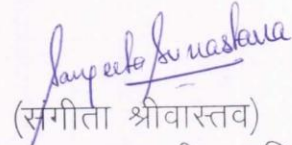 Sangeeta Srivastava
(संगीता श्रीवास्तव)